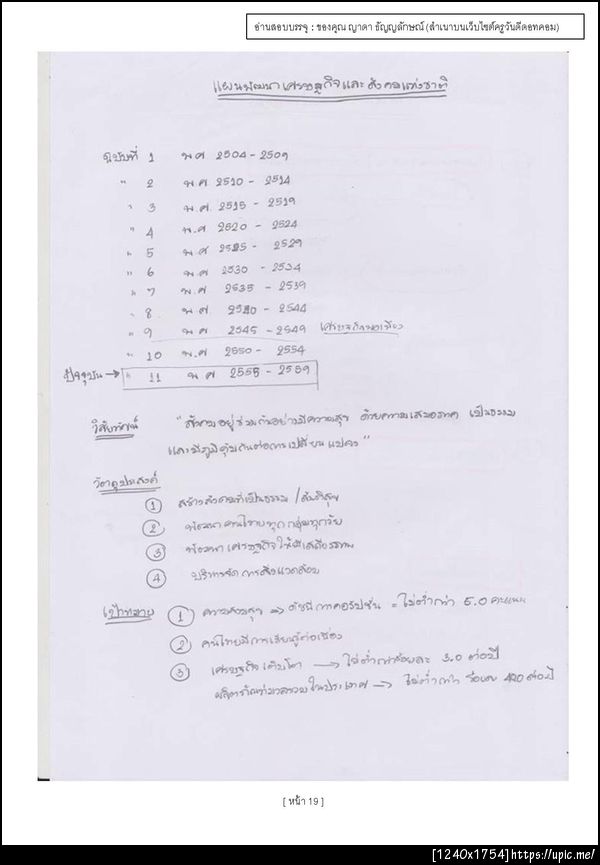 อ่านสอบบรรจุ : ของคุณ ญาดา ธัญญลักษณ์ (สำเนาบนเว็บไซต์ครูวันดีดอทคอม)
แผนพัฒนาเศรษฐกิจและสังคมแห่งชาติ
ฉบับที่ 1 พ.ศ 2504 - 2509
" 2 พ.ศ 2510 - 2514
" 3 พ.ศ. 2515 - 2519
" 4 พ.ศ 2520 - 2524
" 5 พ.ศ 2525 - 2529
" 6 พ.ศ 2530 - 2534
" 7 พ.ศ 2535 - 2539
" 8 พ.ศ 2540 - 2544
" 9 พ.ศ 2545 - 2549 เศรษฐกิจพอเพียง
" 10 พ.ศ 2550 - 2554
ปัจจุบัน → " 11 พ.ศ 2555 - 2559
วิสัยทัศน์ "สังคมอยู่ร่วมกันอย่างมีความสุข ด้วยความเสมอภาค เป็นธรรม
และมีภูมิคุ้มกันต่อการเปลี่ยนแปลง"
วัตถุประสงค์
① สร้างสังคมที่เป็นธรรม / สันติสุข
② พัฒนาคนไทยทุกกลุ่มทุกวัย
③ พัฒนาเศรษฐกิจให้มีเสถียรภาพ
④ บริหารจัดการสิ่งแวดล้อม
เป้าหมาย ① ความสงบสุข → ดัชนีการคอรัปชั่น = ไม่ต่ำกว่า 5.0 คะแนน
② คนไทยมีการเรียนรู้ต่อเนื่อง
③ เศรษฐกิจเติบโต → ไม่ต่ำกว่าร้อยละ 3.0 ต่อปี
ผลิตภัณฑ์มวลรวมในประเทศ → ไม่ต่ำกว่า ร้อยละ 40 ต่อปี
[ หน้า 19 ]
[1240x1754]https://upic.me/